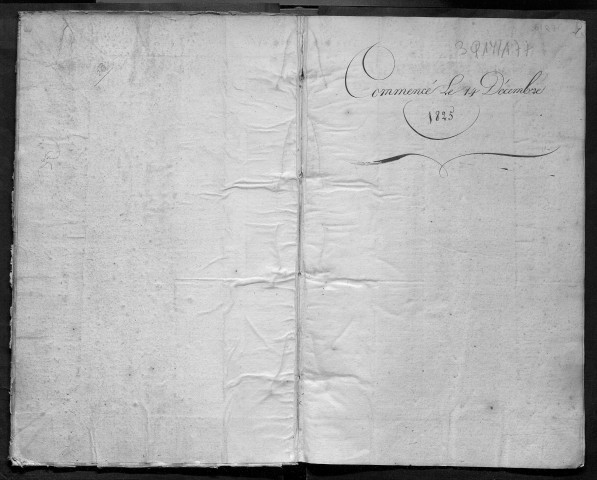 3Q17/178
Commencé Le 14 Décembre
1825